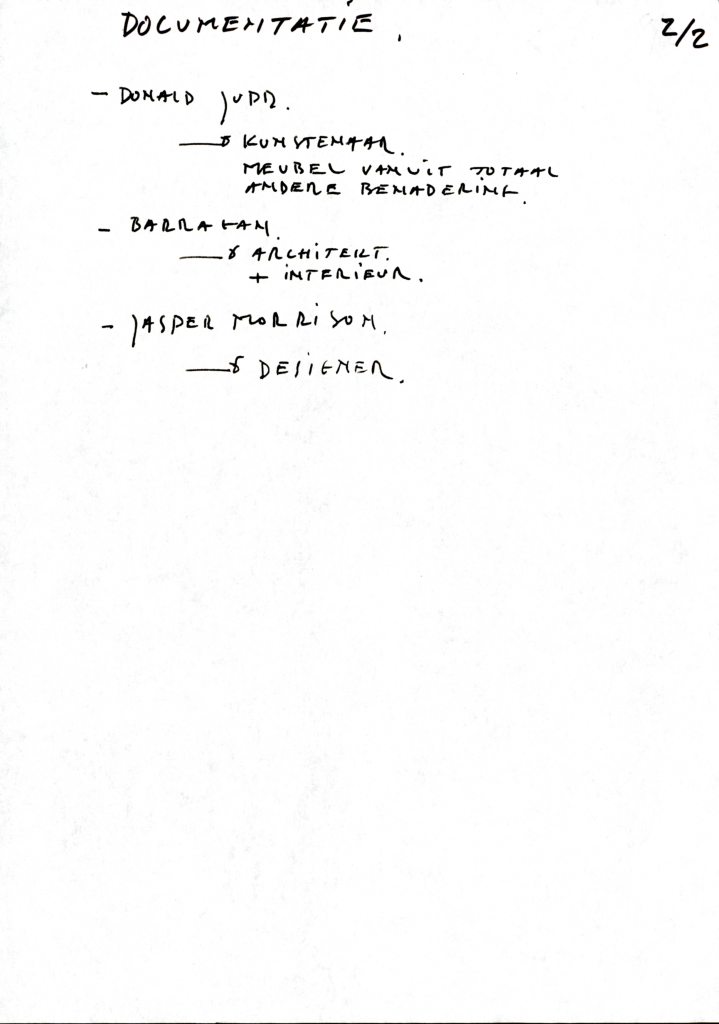 DOCUMENTATIE.
2/2
- DONALD JUDD.
→ KUNSTENAAR.
MEUBEL VANUIT TOTAAL
ANDERE BENADERING.
- BARRAGAN.
→ ARCHITEKT.
+ INTERIEUR.
- JASPER MORRISON.
→ DESIGNER.